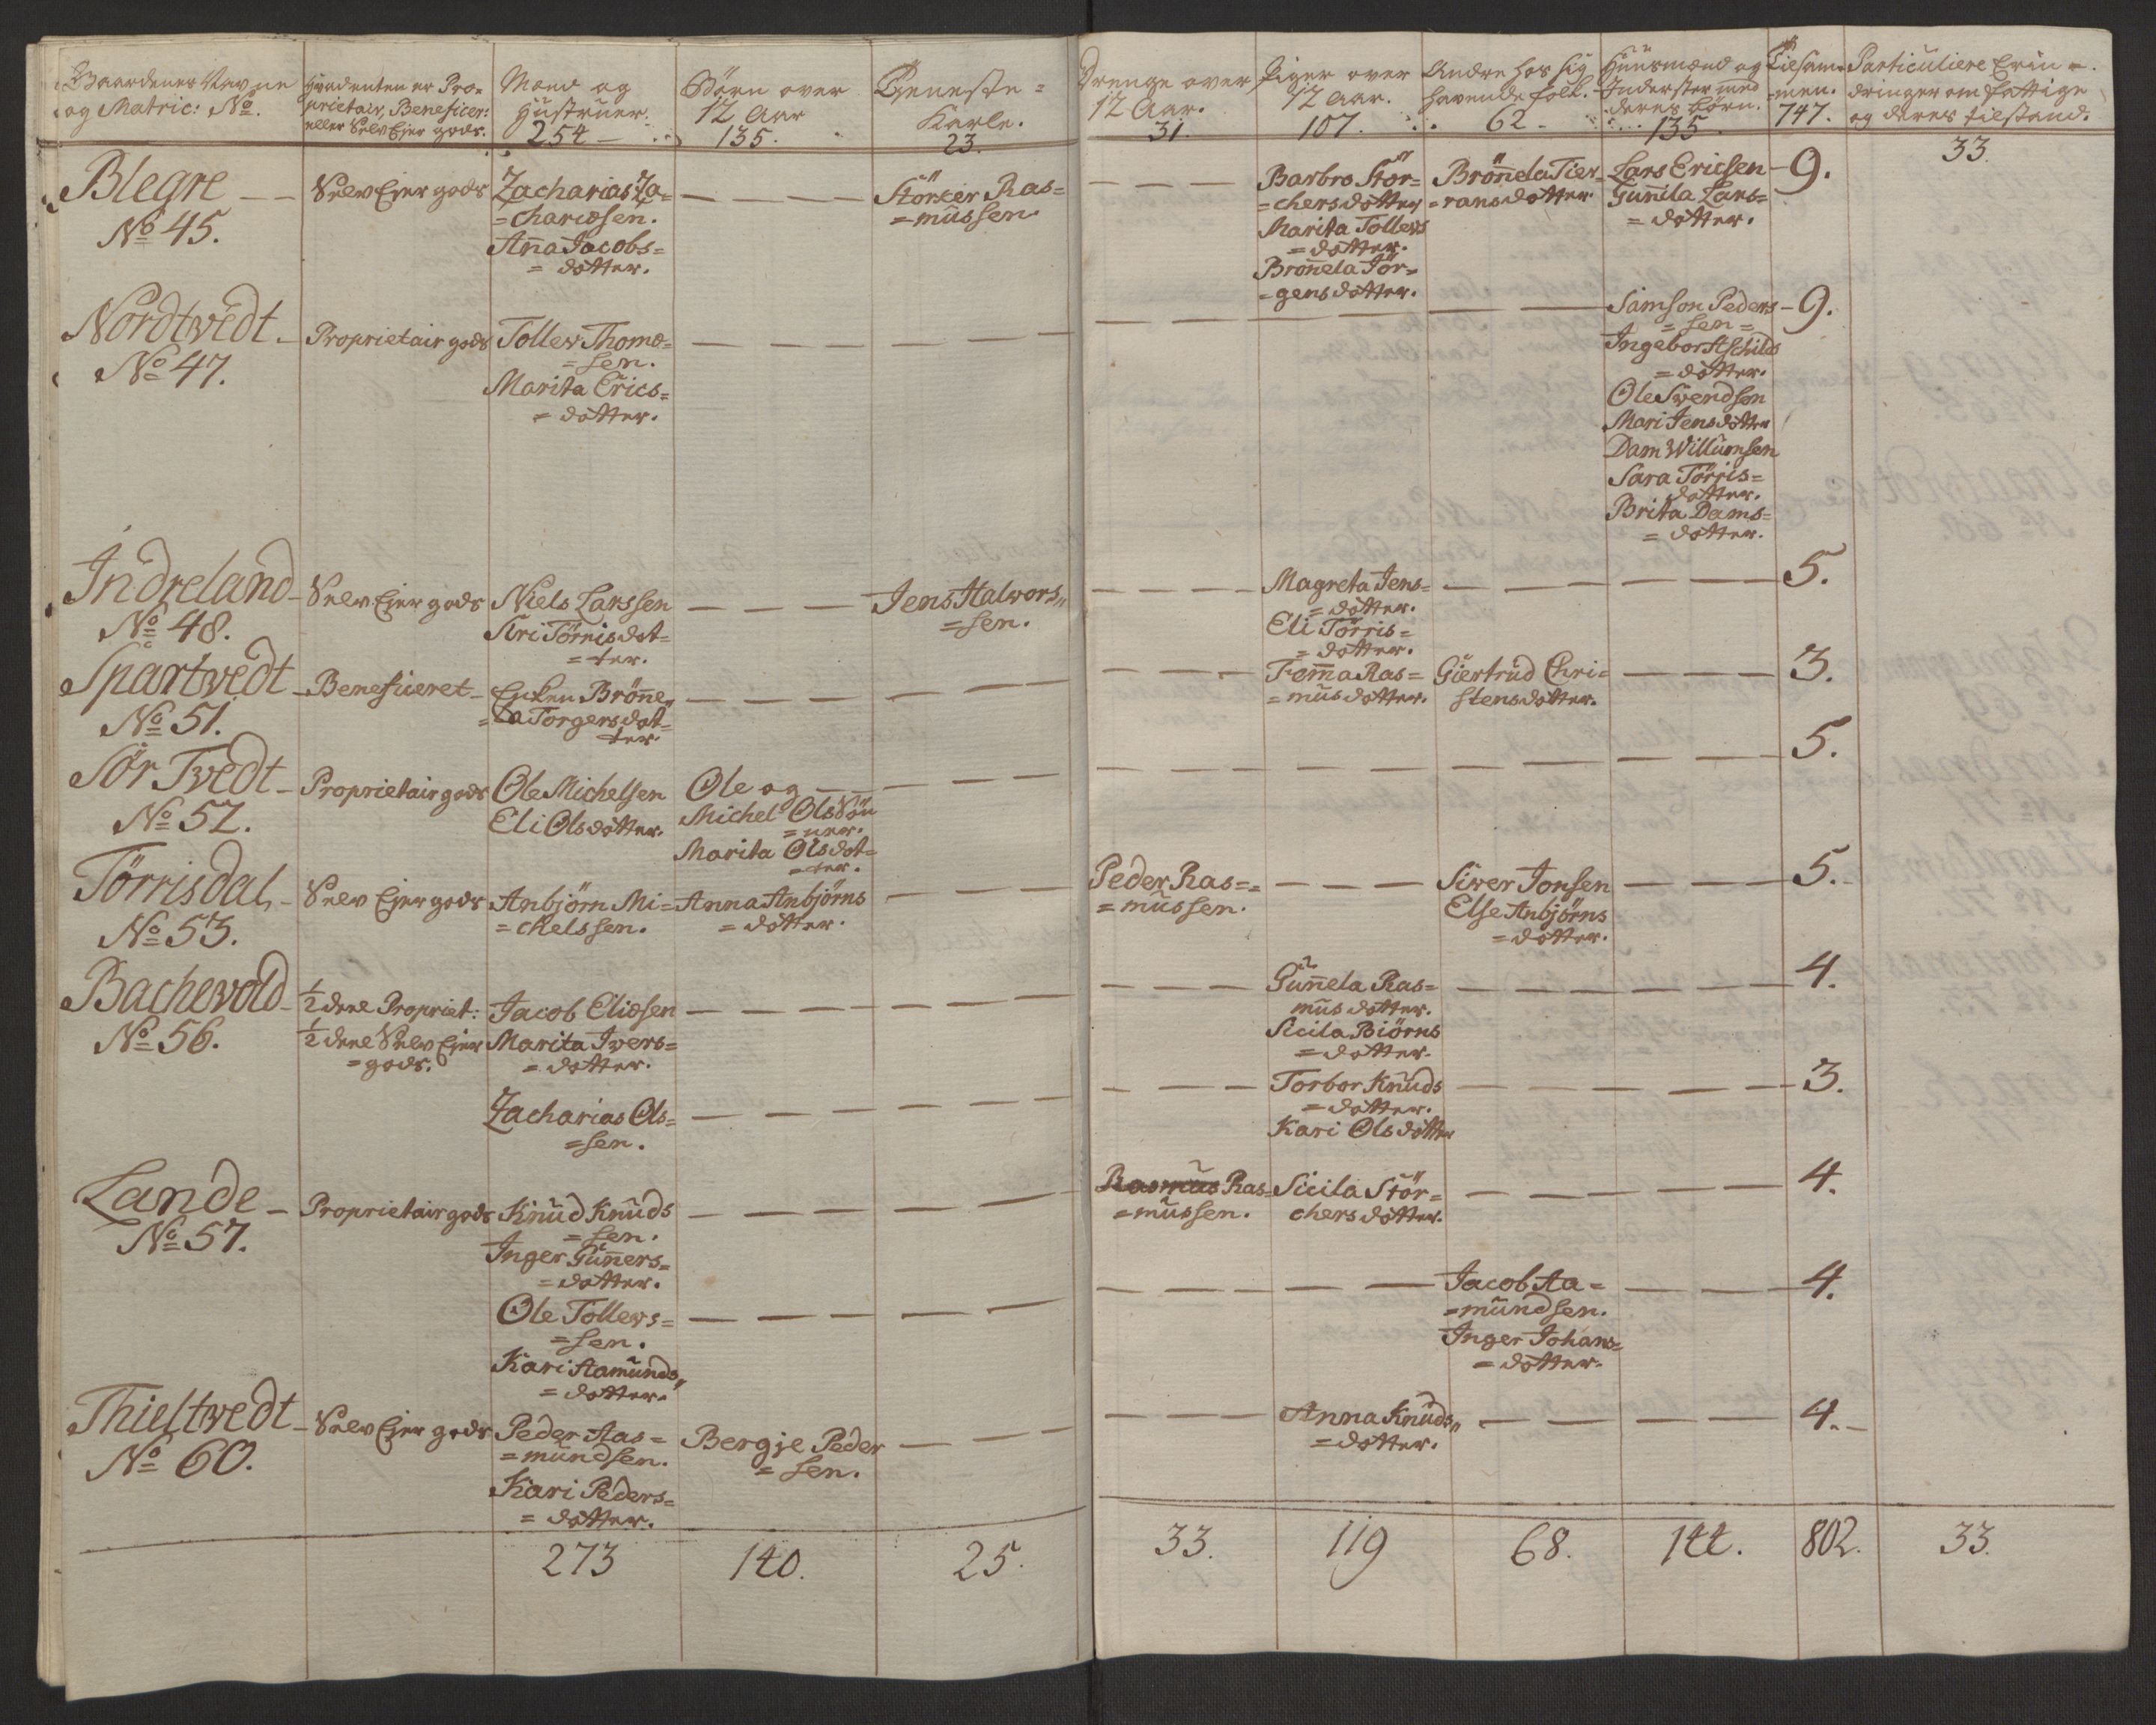 Gaardenes Navne og Matric: No.
Hvadenten er Proprietair, Beneficer: eller Selv Ejer gods.
Mænd og Hustruer. 254
Børn over 12 Aar 135.
Tieneste = Karle. 23.
Drenge over 12 Aar. 31.
Piger over 12 Aar. 107.
Andre hos sig havende folk. 62
Huusmænd og Inderster med deres børn. 135
Tilsammen. 747.
Particuliere Erindringer om fattige og deres tilstand.
33.
Blegre
No 45.
Selv Ejer gods
Zacharias Za=
=chariæsen.
Anna Jacobs=
=dotter.
Störker Ras=
=mussen.
Barbro Stör=
=chersdotter
Marita Tollevs
=dotter.
Bronnela Jör=
=gensdotter.
Brönnela Tier
=ransdotter.
Lars Ericsen
Gunnila Lars=
=dotter.
9.
Nordtvedt
No 47.
Proprietair gods
Tollev Thomæ=
=sen.
Marita Erics=
=dotter.
Samson Peders
=sen=
Ingebor Aschilds
=dotter.
Ole Svendsen
Mari Jensdotter
Dam Willumsen
Sara Törris=
dotter.
Brita Dams=
=dotter.
9.
Indreland
No 48.
Selv Ejer gods
Niels Larssen
Siri Törrisdot=
=ter.
Jens Halvors
=sen.
Magreta Jens=
=dotter.
Eli Törris=
=dotter.
5.
Spartvedt
No 51.
Beneficeret
Enken Brönne
=la Torgersdot=
ter.
Femma Ras=
=musdotter.
Giertrud Chri=
stensdotter.
3.
Sör Tvedt
No 52.
Proprietair gods
Ole Michelsen
Eli Olsdotter.
Ole og
Michel Ols Sön
=ner.
Marita Olsdot=
=ter.
5.
Törrisdal
No 53.
Selv Ejer gods
Anbjörn Mi=
=chelssen.
Anna Anbjörns
=dotter.
Peder Ras=
=mussen.
Siver Jonsen
Else Anbjörns
=dotter.
5.
Bachevold
No 56.
1/2 deel Propriet:
1/2 deel Selv Ejer
=gods.
Jacob Eliæsen
Marita Ivers=
=dotter.
Gunnela Ras=
musdotter.
Sicila Biörns
=dotter.
4.
Zacharias Ols=
=sen.
Torbor Knuds
=dotter.
Kari Olsdotter
3.
Lande
No 57.
Proprietair gods
Knud Knuds
=sen.
Inger Gunners=
=dotter.
Rasmus Ras=
=mussen.
Sicila Stör=
chersdotter.
4.
Ole Tollevs=
=sen.
Kari Aamunds
=dotter.
Jacob Aa=
=mundsen.
Inger Johans=
=dotter.
4.
Thieltvedt
No 60.
Selv Ejer gods
Peder Aas=
=mundsen.
Kari Peders=
=dotter.
Bergje Peder
=sen.
Anna Knuds
=dotter.
4.
273 140. 25. 33. 119 68. 144. 802. 33.